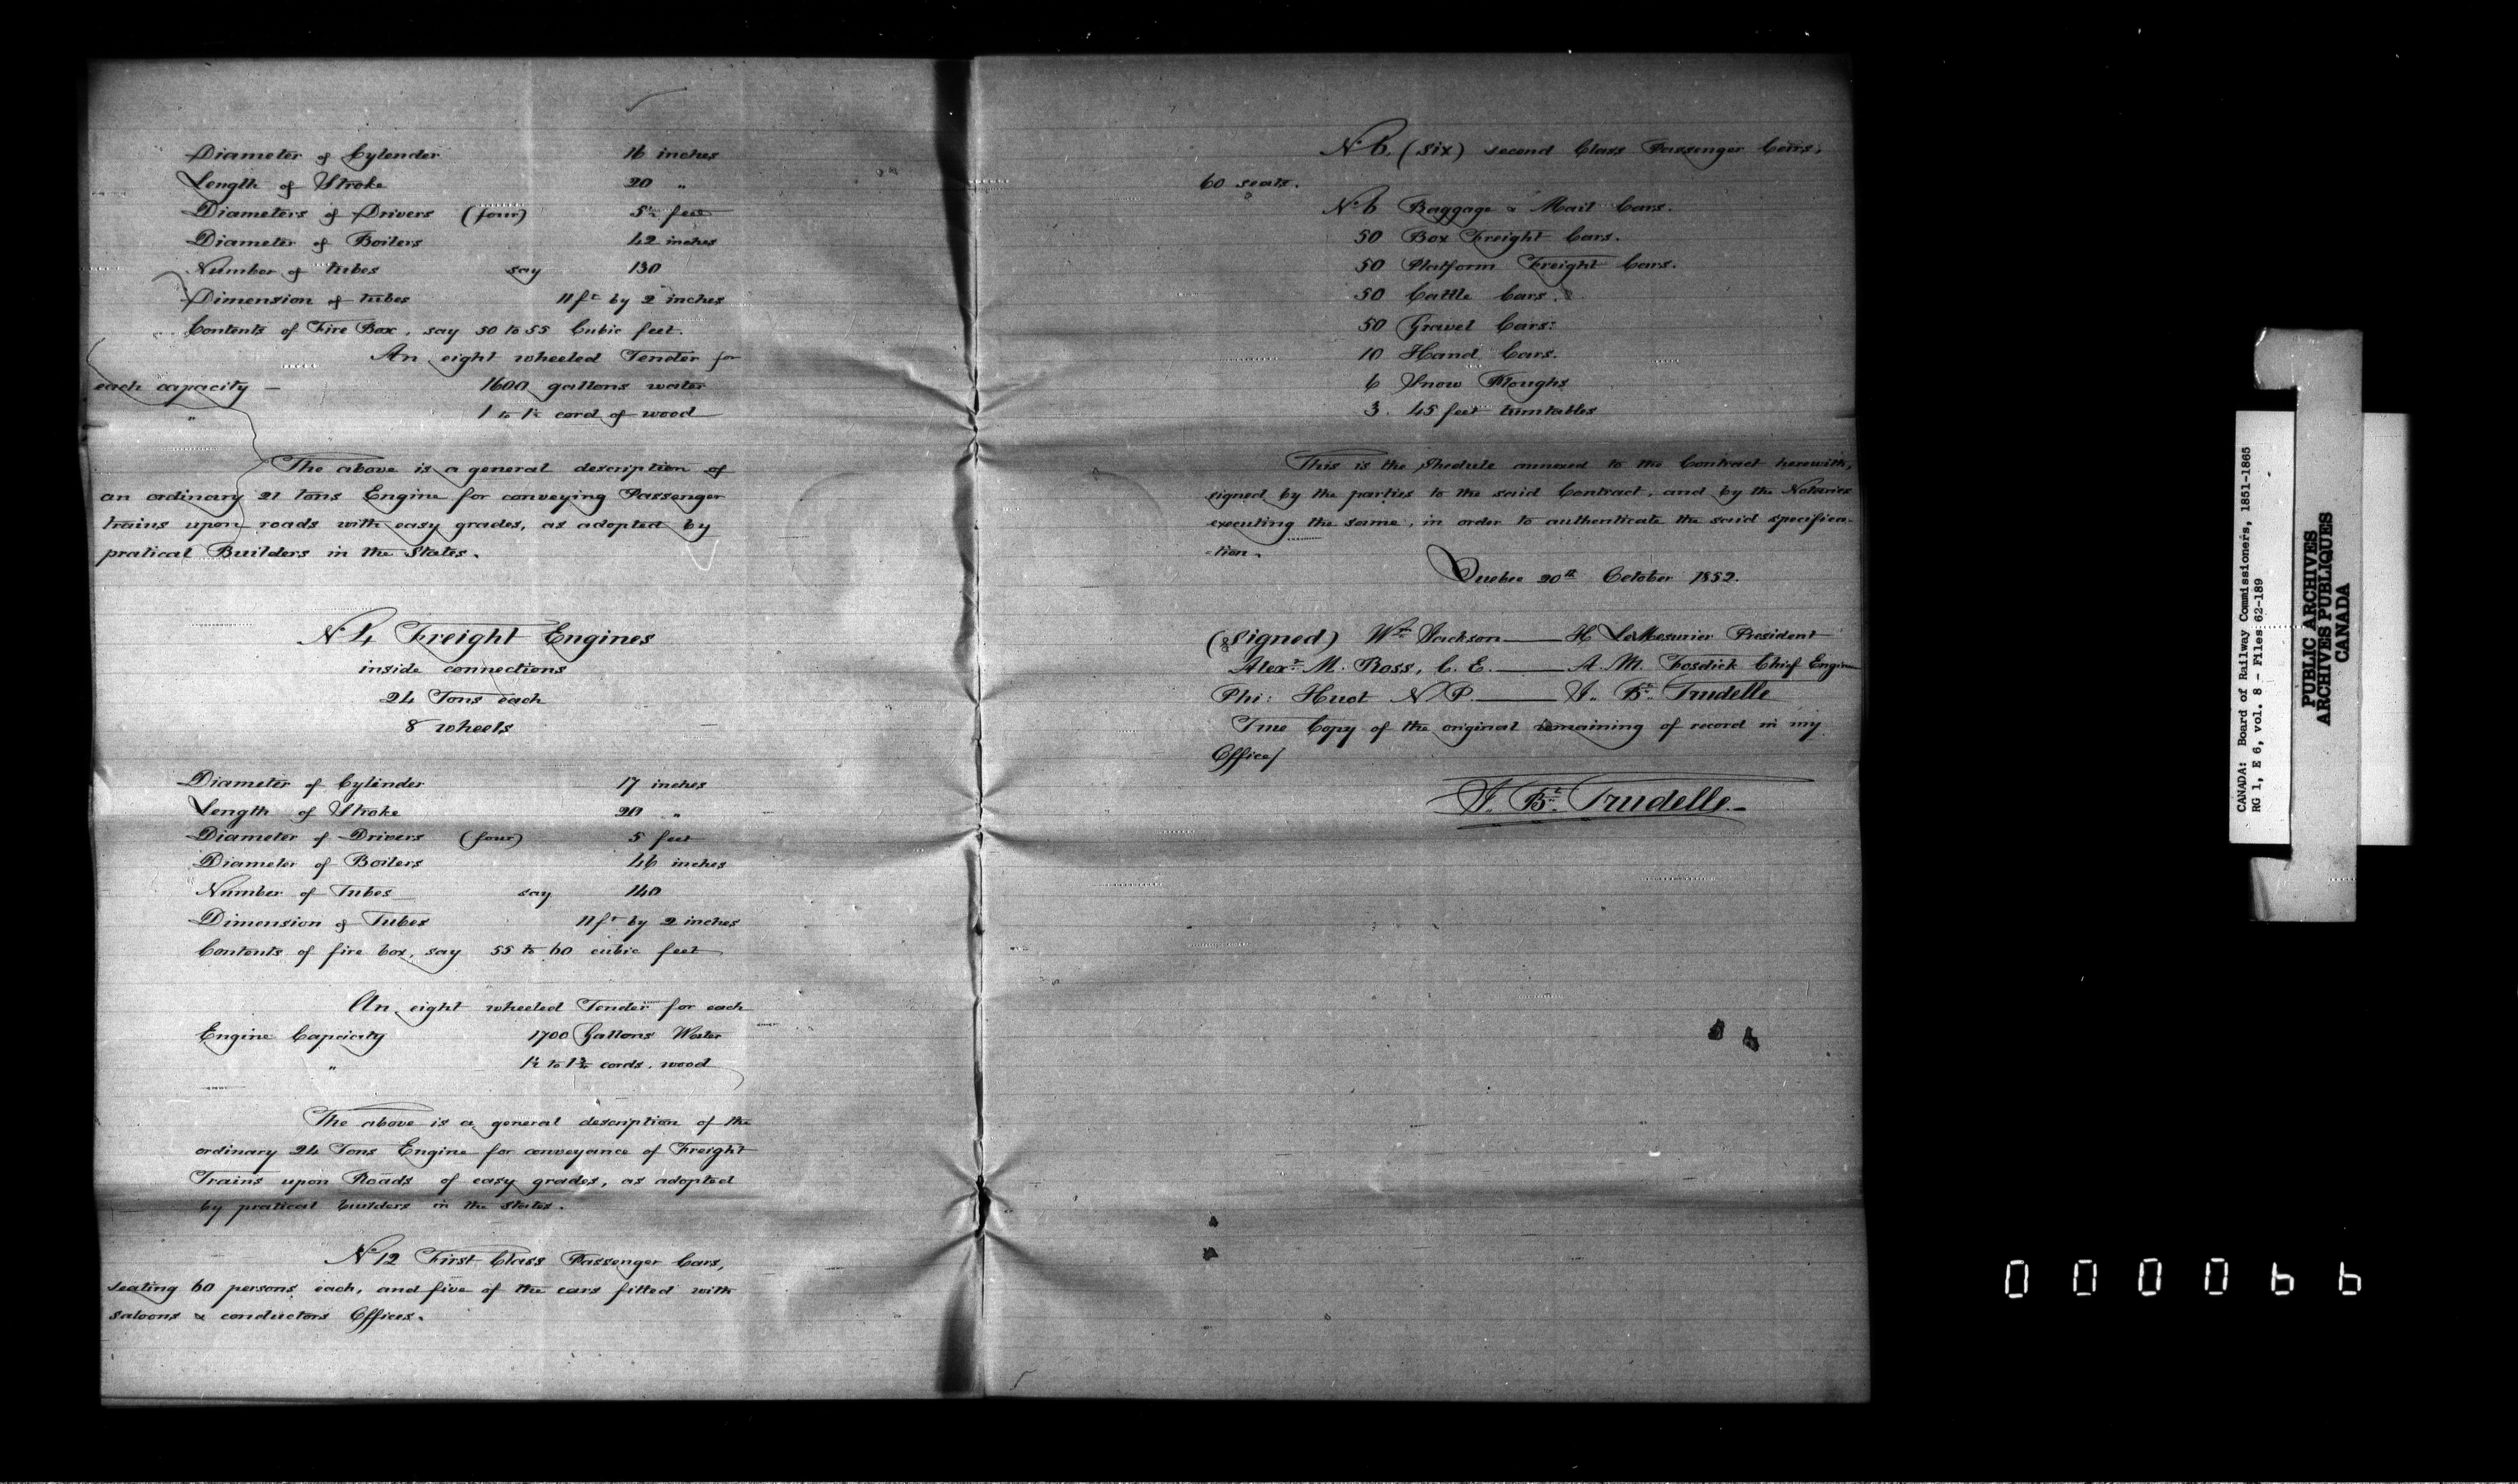 Diameter of Cylender 16 inches
Length of Stroke 20 "
Diameters of Drivers (four) 5½ feet
Diameter of Boilers 42 inches
Number of tubes say 130
Dimension of tubes 11 ft by 2 inches
Contents of Fire Box, say 50 to 55 Cubic feet.
An eight wheeled Tender for
each capacity — 1600 gallons water
" 1 to 1½ cord of wood
The above is a general description of
an ordinary 21 tons Engine for conveying Passenger
trains upon roads with easy grades, as adopted by
pratical Builders in the States.
No 4 Freight Engines
inside connections
24 Tons each
8 wheels
Diameter of Cylinder 17 inches
Length of Stroke 20 "
Diameter of Drivers (four) 5 feet
Diameter of Boilers 46 inches
Number of Tubes say 140
Dimension of Tubes 11 ft by 2 inches
Contents of fire box, say 55 to 60 cubic feet
An eight wheeled Tender for each
Engine Capacity 1700 Gallons Water
" to cords, wood
The above is a general description of the
ordinary 24 Tons Engine for conveyance of Freight
Trains upon Roads of easy grades, as adopted
by pratical builders in the States.
No 12 First Class Passenger Cars,
seating 60 persons each, and five of the cars fitted with
saloons & conductors Offices.
No 6. (six) second Class Passenger Cars,
60 seats.
No 6 Baggage & Mail Cars.
50 Box Freight Cars.
50 Platform Freight Cars.
50 Cattle Cars.
50 Gravel Cars:
10 Hand Cars.
6 Snow Ploughs
3. 45 feet turntables
This is the Shedule annexed to the Contract herewith,
signed by the parties to the said Contract, and by the Notaries
executing the same, in order to authenticate the said specifica-
-tion.
Quebec 20th October 1852.
(Signed) Wm Jackson — H LeMesurier President
Alexr M. Ross, C. E. — A. M. Fosdick Chief Engin
Phi: Huot N P. — J. Bte Trudelle
True Copy of the original remaining of record in my
Office/
J. Bte Trudelle.
CANADA: Board of Railway Commissioners, 1851-1865
RG 1, E 6, vol. 8 - Files 62-189
PUBLIC ARCHIVES
ARCHIVES PUBLIQUES
CANADA
000066